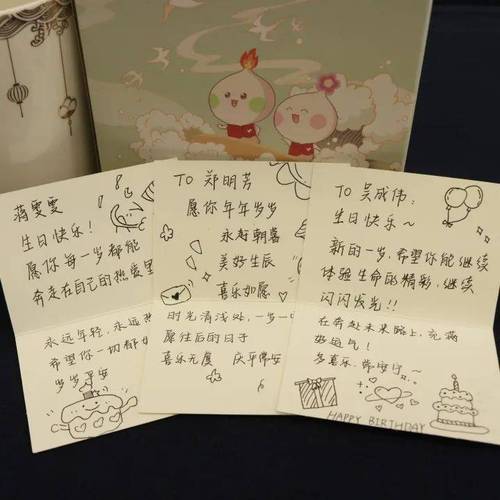 蒋雯雯
生日快乐!
愿你每一岁都能
奔走在自己的热爱里
永远年轻,永远热
希望你一切都如
岁岁平安
TO 郑明芳
愿你年年岁岁
永好朝喜
美好生辰
喜乐如愿
时光清浅处,一步一
愿往后的日子
喜乐无虞
TO 吴成伟:
生日快乐~
新的一岁,希望你能继续
体验生命的精彩,继续
闪闪发光!!
在奔赴未来路上,充满
好运气!
多喜乐,常安宁~
HAPPY BIRTHDAY